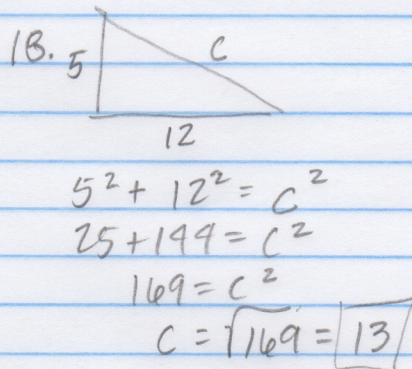 18.
5
C
12
5² + 12² = C²
25 + 144 = C²
169 = C²
C = √169 = 13